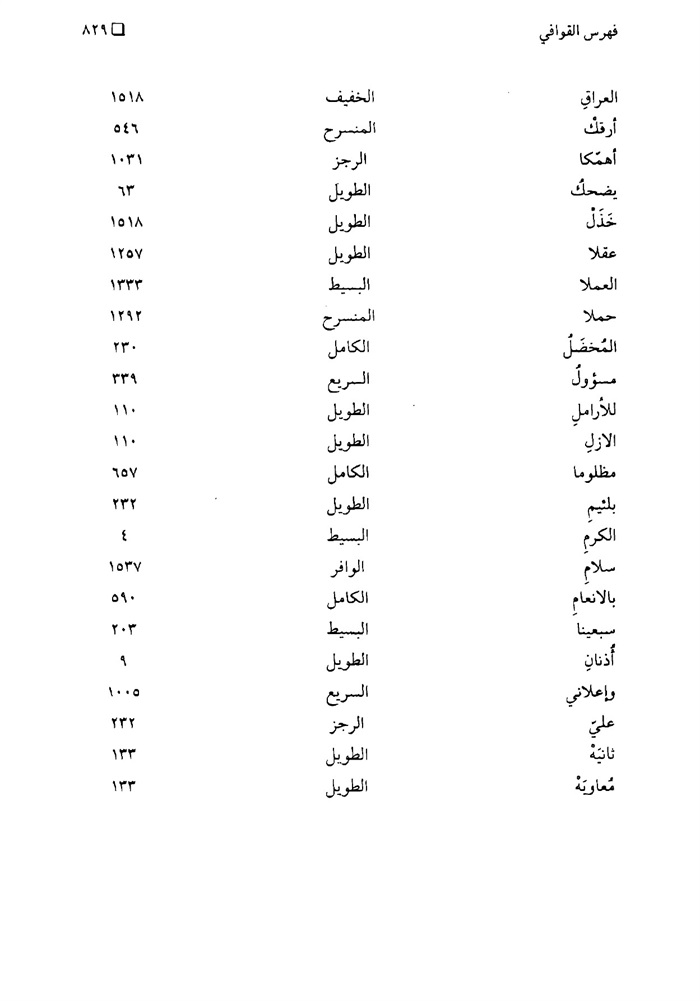 فهرس القوافي ❏ ٨٢٩
العراقِ الخفيف ١٥١٨
أرقكْ المنسرح ٥٤٦
أهمّكا الرجز ١٠٣١
يضحكُ الطويل ٦٣
خَذَلْ الطويل ١٥١٨
عقلا الطويل ١٢٥٧
العملا البسيط ١٣٣٣
حملا المنسرح ١٢٩٢
المُخضَلُ الكامل ٢٣٠
مسؤولُ السريع ٣٣٩
للأراملِ الطويل ١١٠
الازلِ الطويل ١١٠
مظلوما الكامل ٦٥٧
بلئيمِ الطويل ٢٣٢
الكرمِ البسيط ٤
سلامِ الوافر ١٥٣٧
بالانعامِ الكامل ٥٩٠
سبعينا البسيط ٢٠٣
أُذنانِ الطويل ٩
وإعلاني السريع ١٠٠٥
عليّ الرجز ٢٣٢
ثانيَهْ الطويل ١٣٣
مُعاويَهْ الطويل ١٣٣